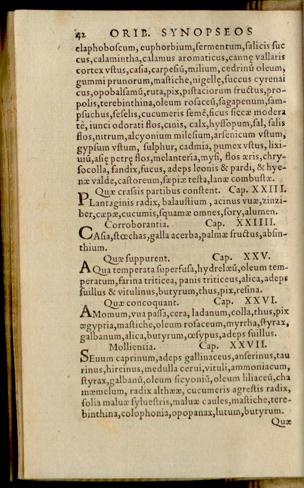 42 ORIB. SYNOPSEOS
elaphoboscum, euphorbium, fermentum, salicis suc
cus, calamintha, calamus aromaticus, cannę vallaris
cortex vstus, casia, carpesiũ, milium, cedrinũ oleum,
gummi prunorum, mastiche, nigellę, succus cyrenai
cus, opobalsamũ, ruta, pix, pistaciorum fructus, pro-
polis, terebinthina, oleum rosaceũ, sagapenum, sam-
psuchus, seselis, cucumeris semẽ, ficus siccæ modera
tè, iunci odorati flos, cinis, calx, hyssopum, sal, salis
flos, nitrum, alcyonium milesium, arsenicum vstum,
gypsum vstum, sulphur, cadmia, pumex vstus, lixi-
uiũ, asię petrę flos, melanteria, mysi, flos æris, chry-
socolla, sandix, fucus, adeps leonis & pardi, & hye-
næ valde, castoreum, sæpiæ testa, lanæ combustæ.
Quæ crassis partibus constent. Cap. XXIII.
PLantaginis radix, balaustium, acinus vuæ, zinzi-
ber, cæpæ, cucumis, squamæ omnes, sory, alumen.
Corroborantia. Cap. XXIIII.
CAsia, stœchas, galla acerba, palmæ fructus, absin-
thium.
Quæ suppurent. Cap. XXV.
AQua temperata superfusa, hydrelæũ, oleum tem-
peratum, farina triticea, panis triticeus, alica, adeps
suillus & vitulinus, butyrum, thus, pix, resina.
Quæ concoquant. Cap. XXVI.
AMomum, vua passa, cera, ladanum, colla, thus, pix
ægyptia, mastiche, oleum rosaceum, myrrha, styrax,
galbanum, alica, butyrum, œsypus, adeps suillus.
Mollientia. Cap. XXVII.
SEuum caprinum, adeps gallinaceus, anserinus, tau
rinus, hircinus, medulla cerui, vituli, ammoniacum,
styrax, galbanũ, oleum sicyoniũ, oleum liliaceũ, cha
mæmelum, radix althææ, cucumeris agrestis radix,
folia maluæ syluestris, maluæ caules, mastiche, tere-
binthina, colophonia, opopanax, lutum, butyrum.
Quæ